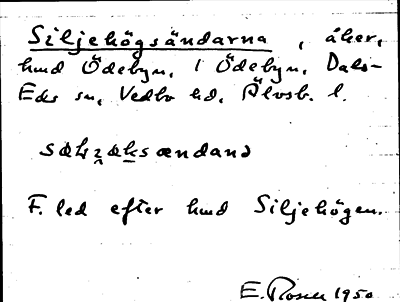 Siljehögsändarna, åker,
hmd Ödebyn, i Ödebyn, Dals-
Eds sn, Vedbo hd, Älvsb. l.
F. led efter hmd Siljehögen.
E. Rosell 1950